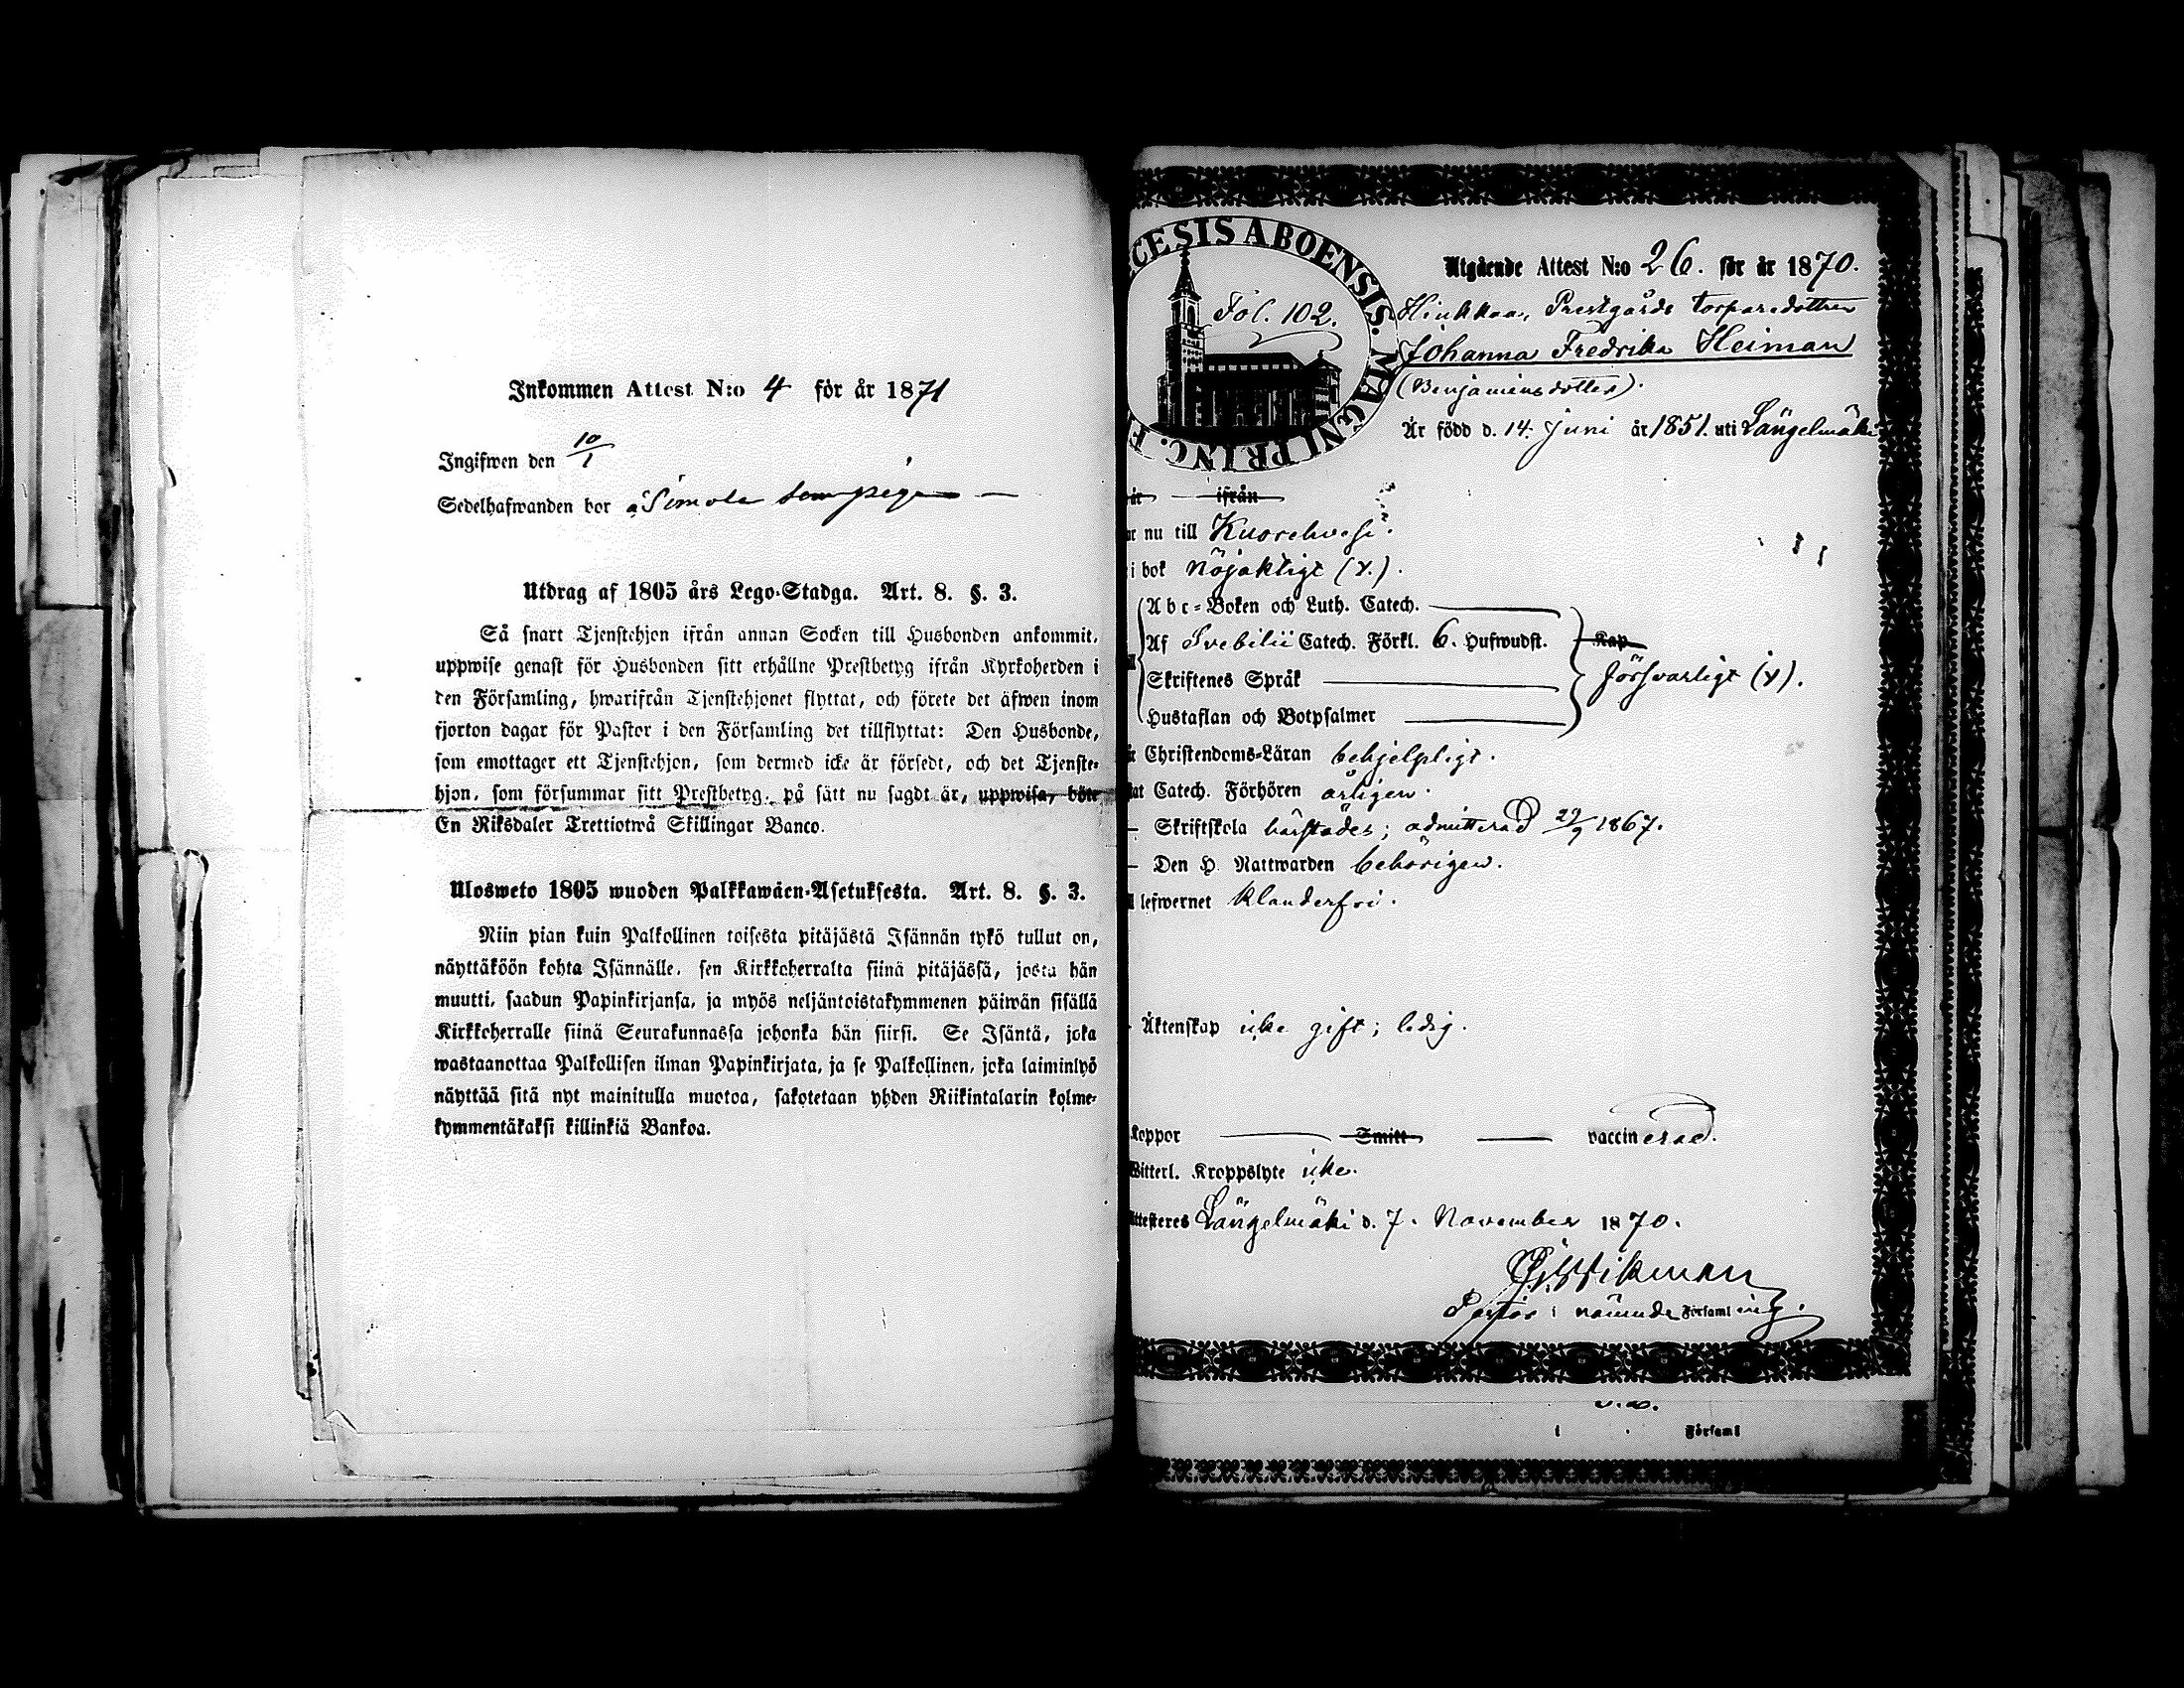 Inkommen Attest N:o 4 för år 1871
Ingifwen den 10/1
Sedelhafwanden bor å Simola som piga
Utdrag af 1805 års Lego-Stadga. Art. 8. §. 3.
Så snart Tjenstehjon ifrån annan Socken till Husbonden ankommit,
uppwise genast för Husbonden sitt erhållne Prestbetyg ifrån Kyrkoherden i
den Församling, hwarifrån Tjenstehjonet flyttat, och förete det äfwen inom
fjorton dagar för Pastor i den Församling det tillflyttat: Den Husbonde,
som emottager ett Tjenstehjon, som dermed icke är försedt, och det Tjenste-
hjon, som försummar sitt Prestbetyg, på sätt nu sagdt är, uppwisa, böte
En Riksdaler Trettiotwå Skillingar Banco.
Ulosweto 1805 wuoden Palkkawäen-Asetuksesta. Art. 8. §. 3.
Niin pian kuin Palkollinen toisesta pitäjästä Isännän tykö tullut on,
näyttäköön kohta Isännälle, sen Kirkkoherralta siinä pitäjässä, josta hän
muutti, saadun Papinkirjansa, ja myös neljäntoistakymmenen päiwän sisällä
Kirkkoherralle siinä Seurakunnassa johonka hän siirsi. Se Isäntä, joka
wastaanottaa Palkollisen ilman Papinkirjata, ja se Palkollinen, joka laiminlyö
näyttää sitä nyt mainitulla muotoa, sakotetaan yhden Riikintalarin kolme-
kymmentäkaksi killinkiä Bankoa.
CESIS ABOENSIS. MAGNI PRINC. F
Fol. 102.
Utgående Attest N:o 26. för år 1870.
Prestgårds torparedottren
Johanna Fredrika Heiman
(Benjaminsdotter).
Är född d. 14. Juni år 1851. uti Längelmäki
år ifrån
nu till Kuorehvesi.
i bok nöjaktigt (x.).
Abc-Boken och Luth. Catech.
Af Svebilii Catech. Förkl. 6. Hufwudst. Kap
Skriftenes Språk försvarligt (x).
Hustaflan och Botpsalmer
Christendoms-Läran behjelpligt.
at Catech. Förhören årligen.
Skriftskola härstädes; admitterad 29/9 1867.
Den H. Nattwarden behörigen.
l lefwernet klanderfri.
Äktenskap icke gift; ledig.
Koppor Smitt vaccinerad.
Witterl. Kroppslyte icke.
Attesteres Längelmäki d. 7. November 1870.
Wikman
Pastor i nämnde Församling.
i Församl